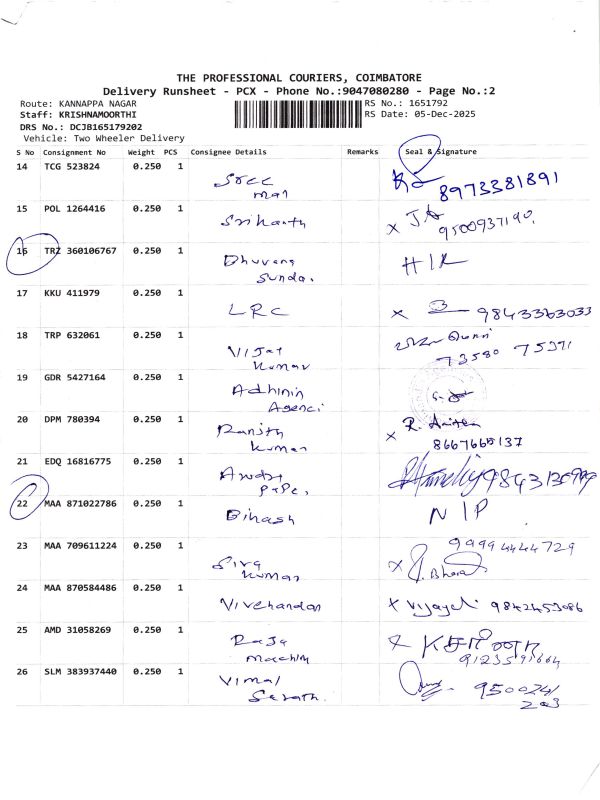 THE PROFESSIONAL COURIERS, COIMBATORE
Delivery Runsheet - PCX - Phone No.:9047080280 - Page No.:2
Route: KANNAPPA NAGAR
RS No.: 1651792
Staff: KRISHNAMOORTHI
RS Date: 05-Dec-2025
DRS No.: DCJB165179202
Vehicle: Two Wheeler Delivery
S No Consignment No Weight PCS Consignee Details Remarks Seal & Signature
14 TCG 523824 0.250 1
8973381891
15 POL 1264416 0.250 1 Srikanth
x
16 TRZ 360106767 0.250 1 Dhuvana
Sundar
17 KKU 411979 0.250 1 LRC x 9843363033
18 TRP 632061 0.250 1 Vijay
Kumar
73580 75371
19 GDR 5427164 0.250 1 Adhinin
Agenci
20 DPM 780394 0.250 1 Ranjith
Kumar
x R. Anitha
8667665137
21 EDQ 16816775 0.250 1
22 MAA 871022786 0.250 1 N/P
23 MAA 709611224 0.250 1 Siva
Kumar
99994444729
x
24 MAA 870584486 0.250 1 x 9842453086
25 AMD 31058269 0.250 1 Raja
26 SLM 383937440 0.250 1 Vimal
9500241
203